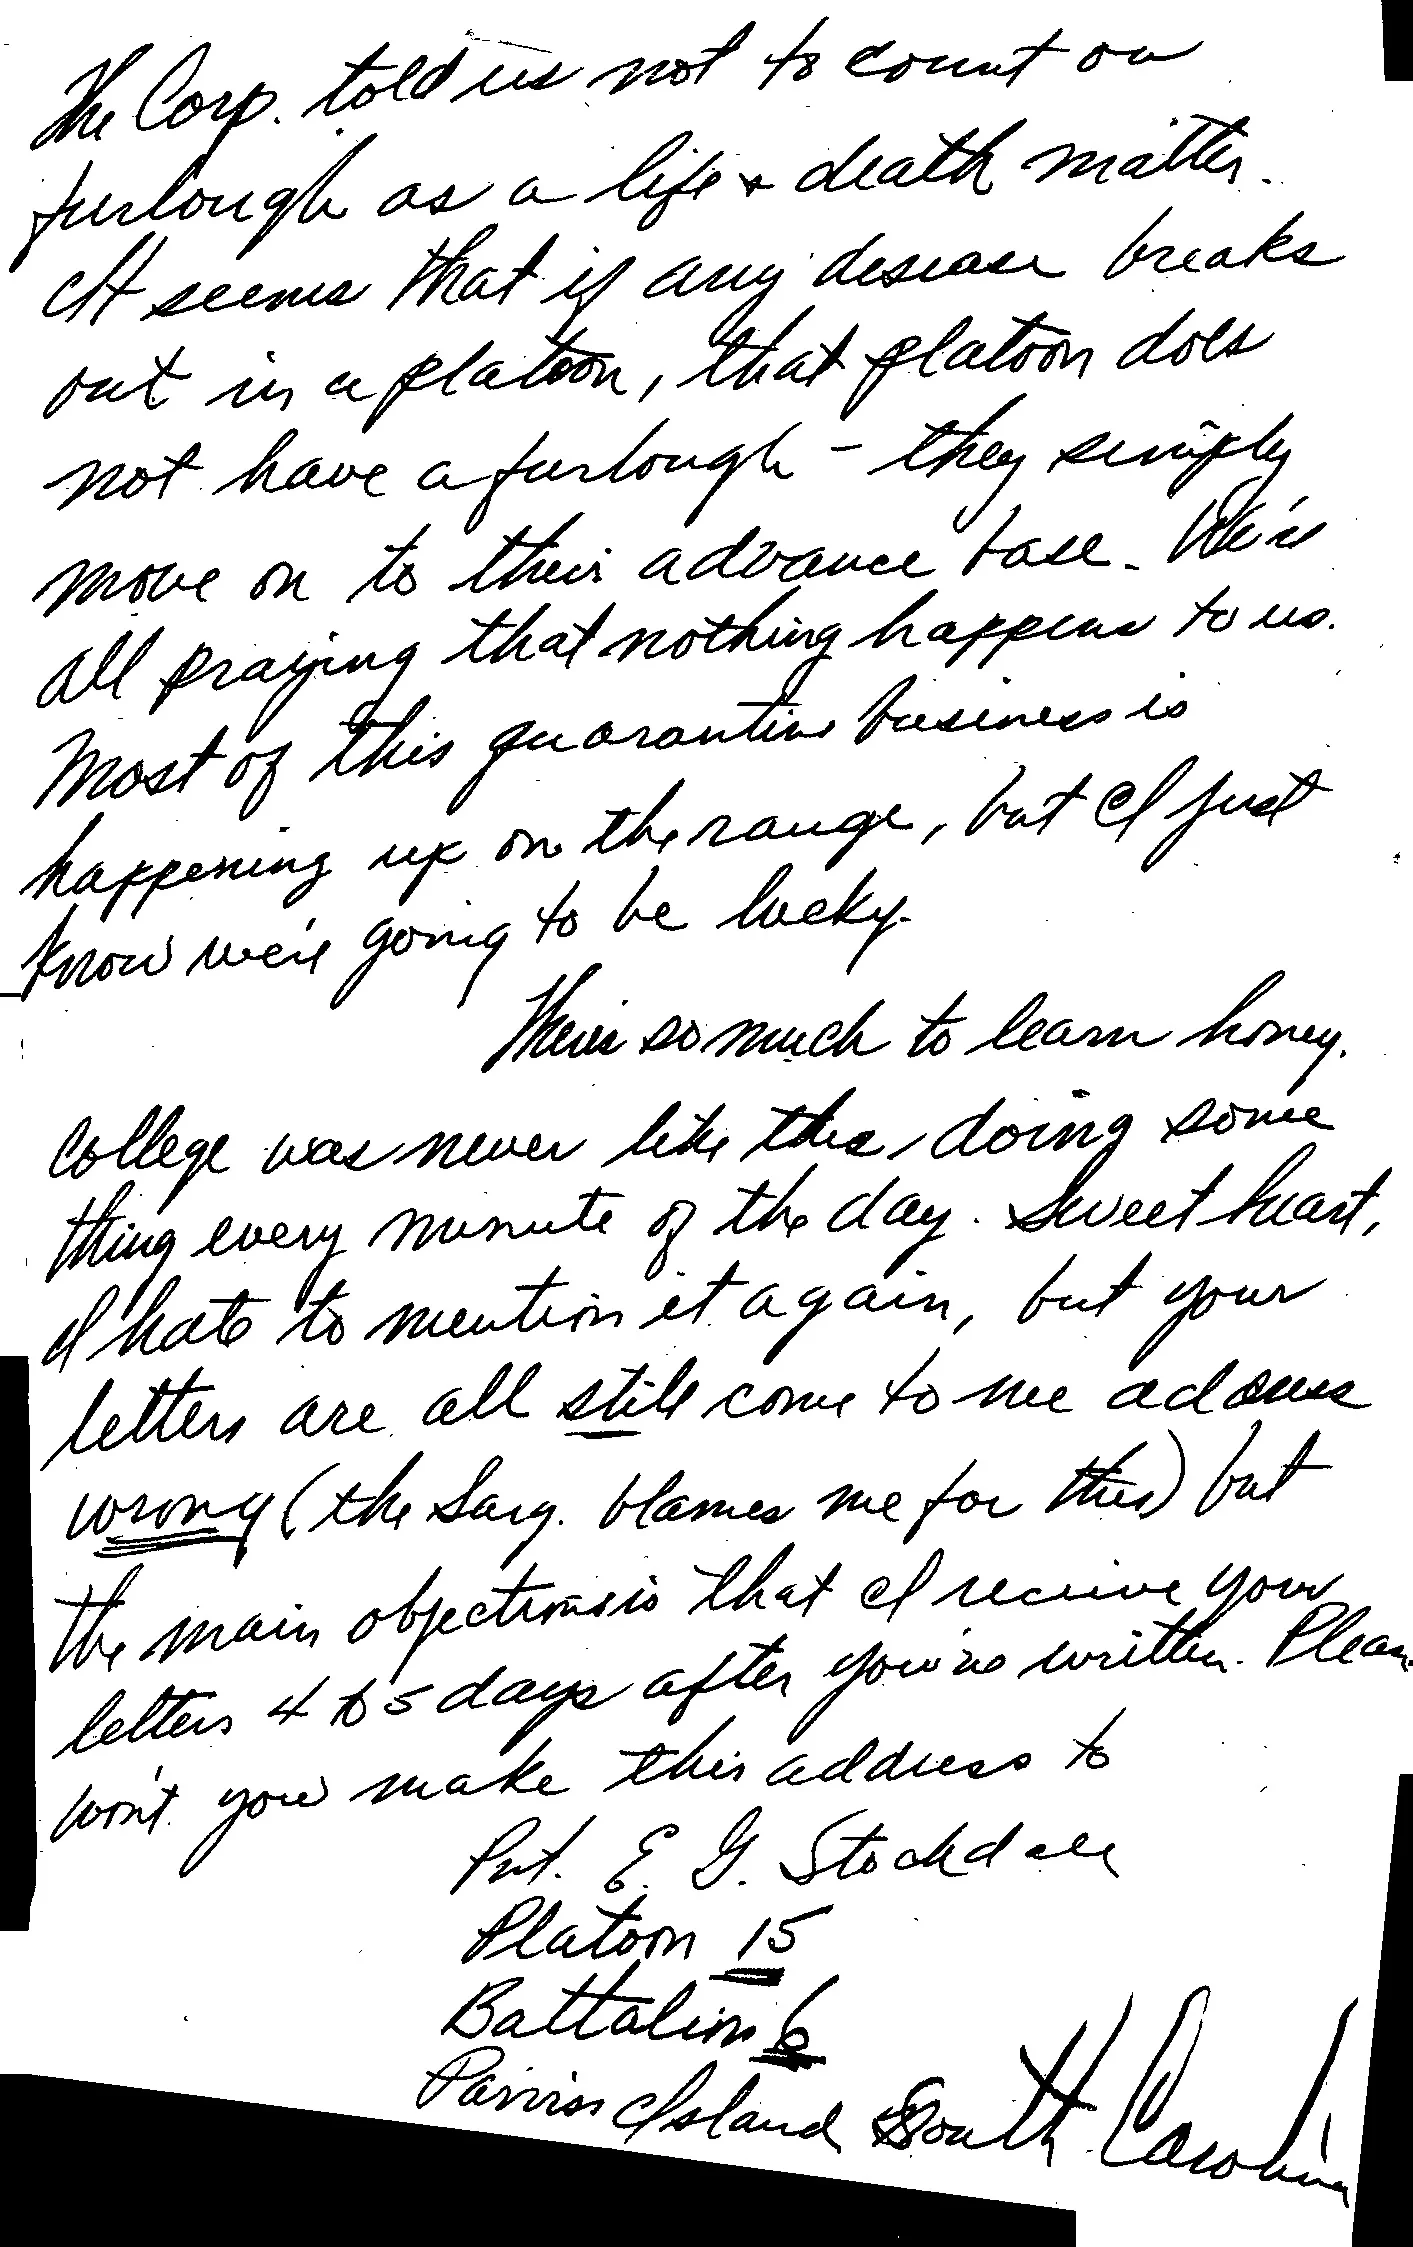 The Corp. told us not to count on
furlough as a life & death matter.
It seems that if any disease breaks
out in a platoon, that platoon does
not have a furlough - they simply
move on to their advance base. We're
all praying that nothing happens to us.
Most of this quarantine business is
happening up on the range, but I just
know we're going to be lucky.
There's so much to learn honey.
College was never like this, doing some
thing every minute of the day. Sweet heart,
I hate to mention it again, but your
letters are all still come to me address
wrong (the Sarg. blames me for this) but
the main objection is that I receive your
letters 4 to 5 days after you've written. Please
won't you make this address to
Pvt. E. G. Stockdale
Platoon 15
Battalion 6
Parris Island South Carolina